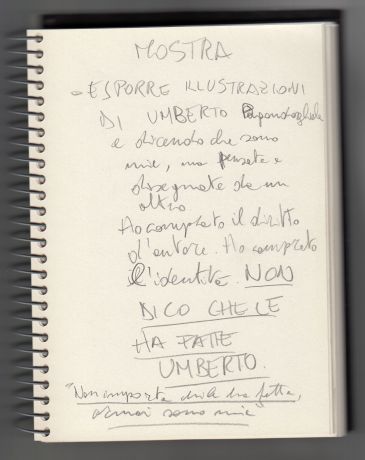 MOSTRA
- ESPORRE ILLUSTRAZIONI
DI UMBERTO
e dicendo che sono
mie, ma pensate e
disegnate da un
altro.
Ho comprato il diritto
d'autore. Ho comprato
l'identità. NON
DICO CHE LE
HA FATTE
UMBERTO.
"Non importa chi le ha fatte,
ormai sono mie"